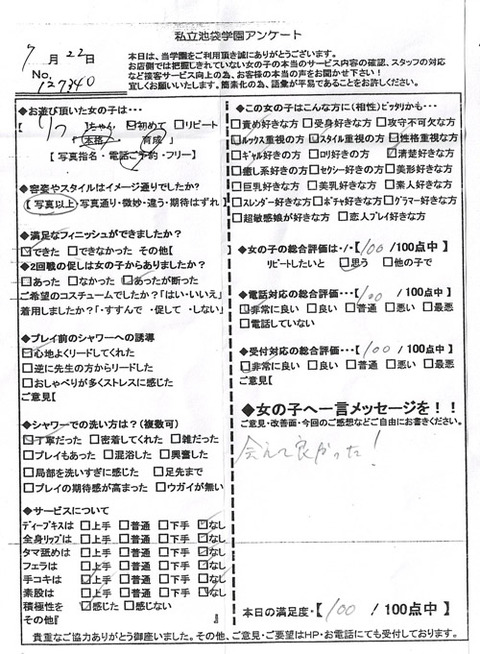 私立池袋学園アンケート
7月22日
No. 127340
本日は、当学園をご利用頂き誠にありがとうございます。
お店側では把握しきれていない女の子の本当のサービス内容の確認、スタッフの対応
など接客サービス向上の為、お客様の本当の声をお聞かせ下さい！
宜しくお願いいたします。簡素化の為、語彙が平易であることをお許しください。
◆お遊び頂いた女の子は・・・
【 りつ 】ちゃん ☑初めて □リピート
「 本格 ・ 育成 」
【 写真指名・電話ご予約・フリー】
◆容姿やスタイルはイメージ通りでしたか？
【 写真以上】写真通り・微妙・違う・期待はずれ】
◆満足なフィニッシュができましたか？
☑できた □できなかった その他【
◆2回戦の促しは女の子からありましたか？
□あった □なかった ☑あったが断った
ご希望のコスチュームでしたか？「はい・いいえ」
着用しましたか？「・すすんで ・促して ・しない」
◆プレイ前のシャワーへの誘導
☑心地よくリードしてくれた
□逆に先生の方からリードした
□おしゃべりが多くストレスに感じた
ご意見【
◆シャワーでの洗い方は？（複数可）
☑丁寧だった □密着してくれた □雑だった
□プレイもあった □混浴した □興奮した
□局部を洗いすぎに感じた □足先まで
□プレイの期待感が高まった □ウガイが無い
◆サービスについて
ディープキスは □上手 □普通 □下手 ☑なし
全身リップは □上手 □普通 □下手 ☑なし
タマ舐めは □上手 □普通 □下手 ☑なし
フェラは □上手 □普通 □下手 ☑なし
手コキは ☑上手 □普通 □下手 □なし
素股は □上手 □普通 □下手 ☑なし
積極性を ☑感じた □感じない
その他『 』
◆この女の子はこんな方に（相性）ピッタリかも・・・
□責め好きな方 □受身好きな方 □攻守不可欠な方
☑ルックス重視の方 ☑スタイル重視の方 ☑性格重視な方
□ギャル好きの方 □ロリ好きの方 ☑清楚好きな方
□癒し系好きの方 □セクシー好きの方 □美形好きな方
□巨乳好きな方 □美乳好きな方 □素人好きな方
□スレンダー好きな方 □ポチャ好きな方 □グラマー好きな方
□超敏感娘が好きな方 □恋人プレイ好きな方
◆女の子の総合評価は・・・【 100 /100点中 】
リピートしたいと ☑思う □他の子で
◆電話対応の総合評価・・・【 100 /100点中 】
☑非常に良い □良い □普通 □悪い □最悪
□電話していない
◆受付対応の総合評価・・・【 100 /100点中 】
☑非常に良い □良い □普通 □悪い □最悪
ご意見【
◆女の子へ一言メッセージを！！
ご意見・改善面・今回のご感想などご自由にお書きください。
会えて良かった！
本日の満足度・【 100 /100点中】
貴重なご協力ありがとう御座いました。その他、ご意見・ご要望はHP・お電話にても受付しております。